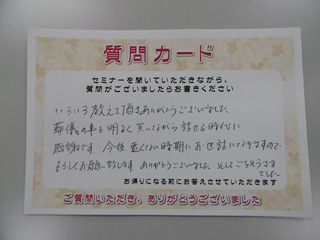 質問カード
セミナーを聞いていただきながら、
質問がございましたらお書きください
いろいろ教えて頂きありがとうございました。
葬儀の事を明るく笑いながら話せる時代に
感謝です。今後遠くない時期にお世話になりますので、
よろしくお願い致します。ありがとうございました。そしてごちそうさま
でした。
お帰りになる前にお答えさせていただきます
ご質問いただき、ありがとうございました